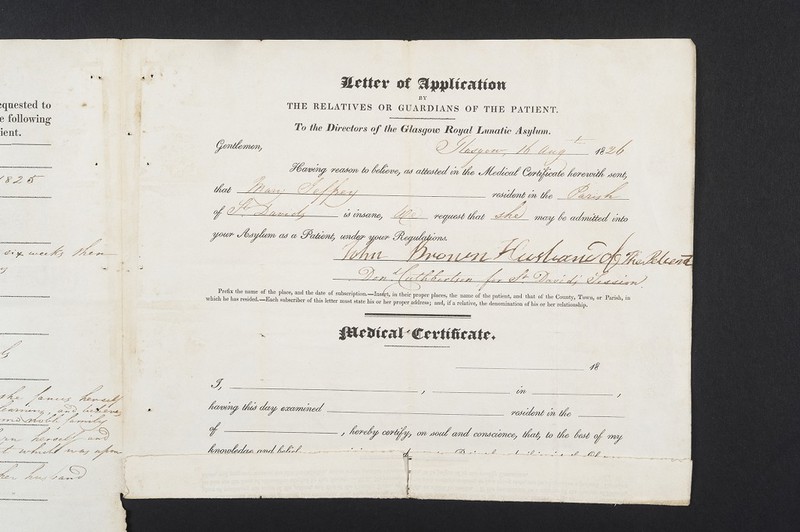 equested to
e following
ient.
1825
six weeks then
she fancies herself
husband
Letter of Application
BY
THE RELATIVES OR GUARDIANS OF THE PATIENT.
To the Directors of the Glasgow Royal Lunatic Asylum.
Glasgow 16 Augt 1826
Gentlemen,
Having reason to believe, as attested in the Medical Certificate herewith sent,
that Mary Jeffrey resident in the Parish
of St. Davids is insane, We request that she may be admitted into
your Asylum as a Patient, under your Regulations.
John Brown Husband of The Patient
Cuthbertson for St. Davids Session
Prefix the name of the place, and the date of subscription.—Insert, in their proper places, the name of the patient, and that of the County, Town, or Parish, in
which he has resided.—Each subscriber of this letter must state his or her proper address; and, if a relative, the denomination of his or her relationship.
Medical Certificate.
18
I, , in ,
having this day examined resident in the
of , hereby certify, on soul and conscience, that, to the best of my
knowledge and belief